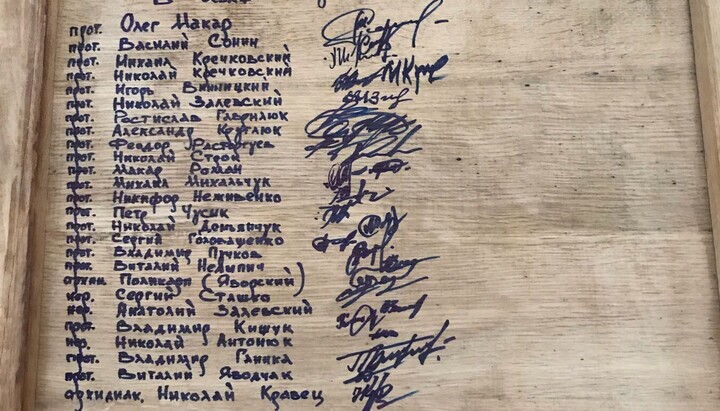 прот. Олег Макар
прот. Василий Сонин
прот. Михаил Кречковский
прот. Николай Кречковский
прот. Игорь Винницкий
прот. Николай Залевский
прот. Ростислав Гаврилюк
прот. Александр Круглюк
прот. Феодор Расторгуев
прот. Николай Строй
прот. Макар Роман
прот. Михаил Михальчук
прот. Никифор Неживенко
прот. Петр Чусик
прот. Николай Демьянчук
прот. Сергий Головащенко
прот. Владимир Пучков
Виталий Нелипич
архим. Поликарп (Яворский)
иер. Сергий Сташко
иер. Анатолий Залевский
прот. Владимир Кищук
иер. Николай Антонюк
прот. Владимир Ганика
прот. Виталий Яводчак
архидиак. Николай Кравец